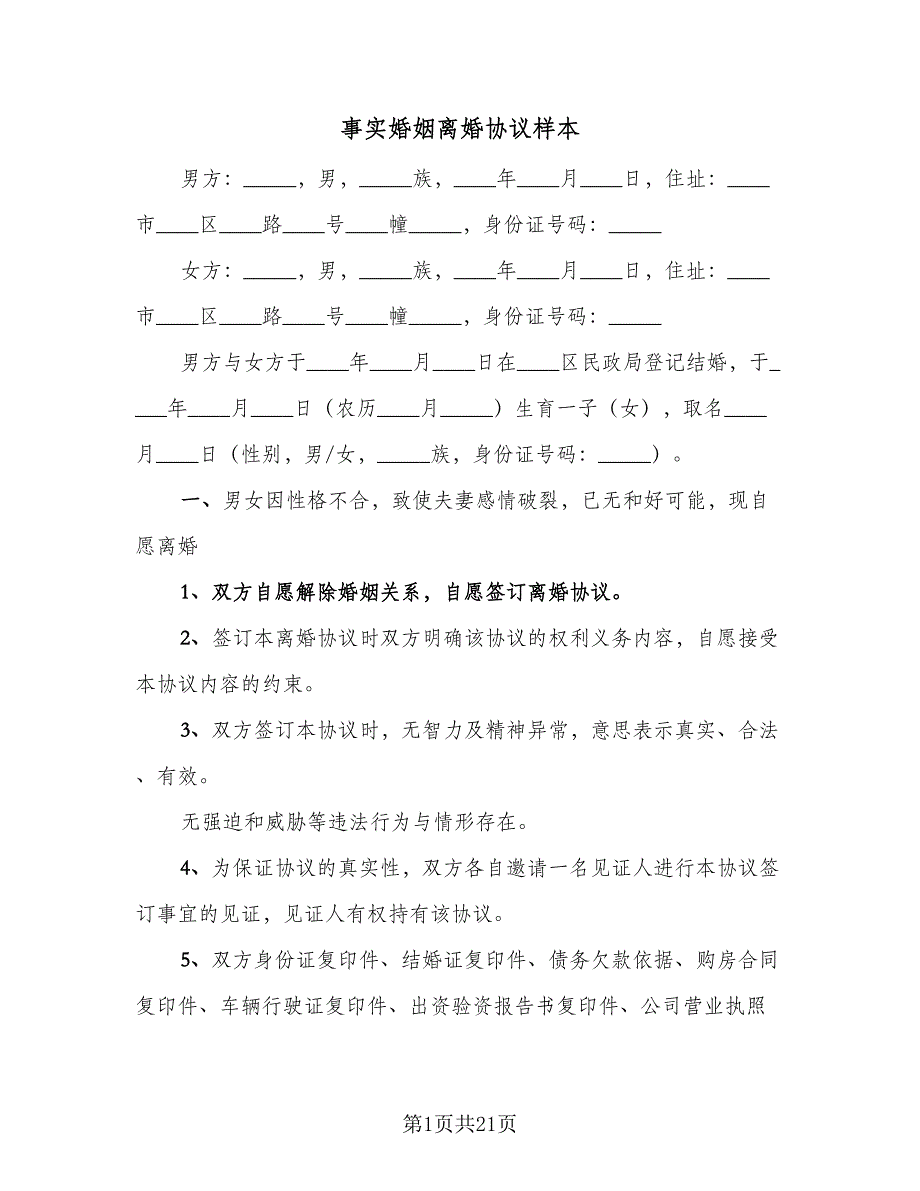 事实婚姻离婚协议样本
男方：_____，男，_____族，____年____月____日，住址：____
市____区____路____号____幢_____，身份证号码：_____
女方：_____，男，_____族，____年____月____日，住址：____
市____区____路____号____幢_____，身份证号码：_____
男方与女方于____年____月____日在____区民政局登记结婚，于_
___年____月____日（农历____月_____）生育一子（女），取名____
月____日（性别，男/女，_____族，身份证号码：_____）。
一、男女因性格不合，致使夫妻感情破裂，已无和好可能，现自
愿离婚
1、双方自愿解除婚姻关系，自愿签订离婚协议。
2、签订本离婚协议时双方明确该协议的权利义务内容，自愿接受
本协议内容的约束。
3、双方签订本协议时，无智力及精神异常，意思表示真实、合法
、有效。
无强迫和威胁等违法行为与情形存在。
4、为保证协议的真实性，双方各自邀请一名见证人进行本协议签
订事宜的见证，见证人有权持有该协议。
5、双方身份证复印件、结婚证复印件、债务欠款依据、购房合同
复印件、车辆行驶证复印件、出资验资报告书复印件、公司营业执照
第1页共21页